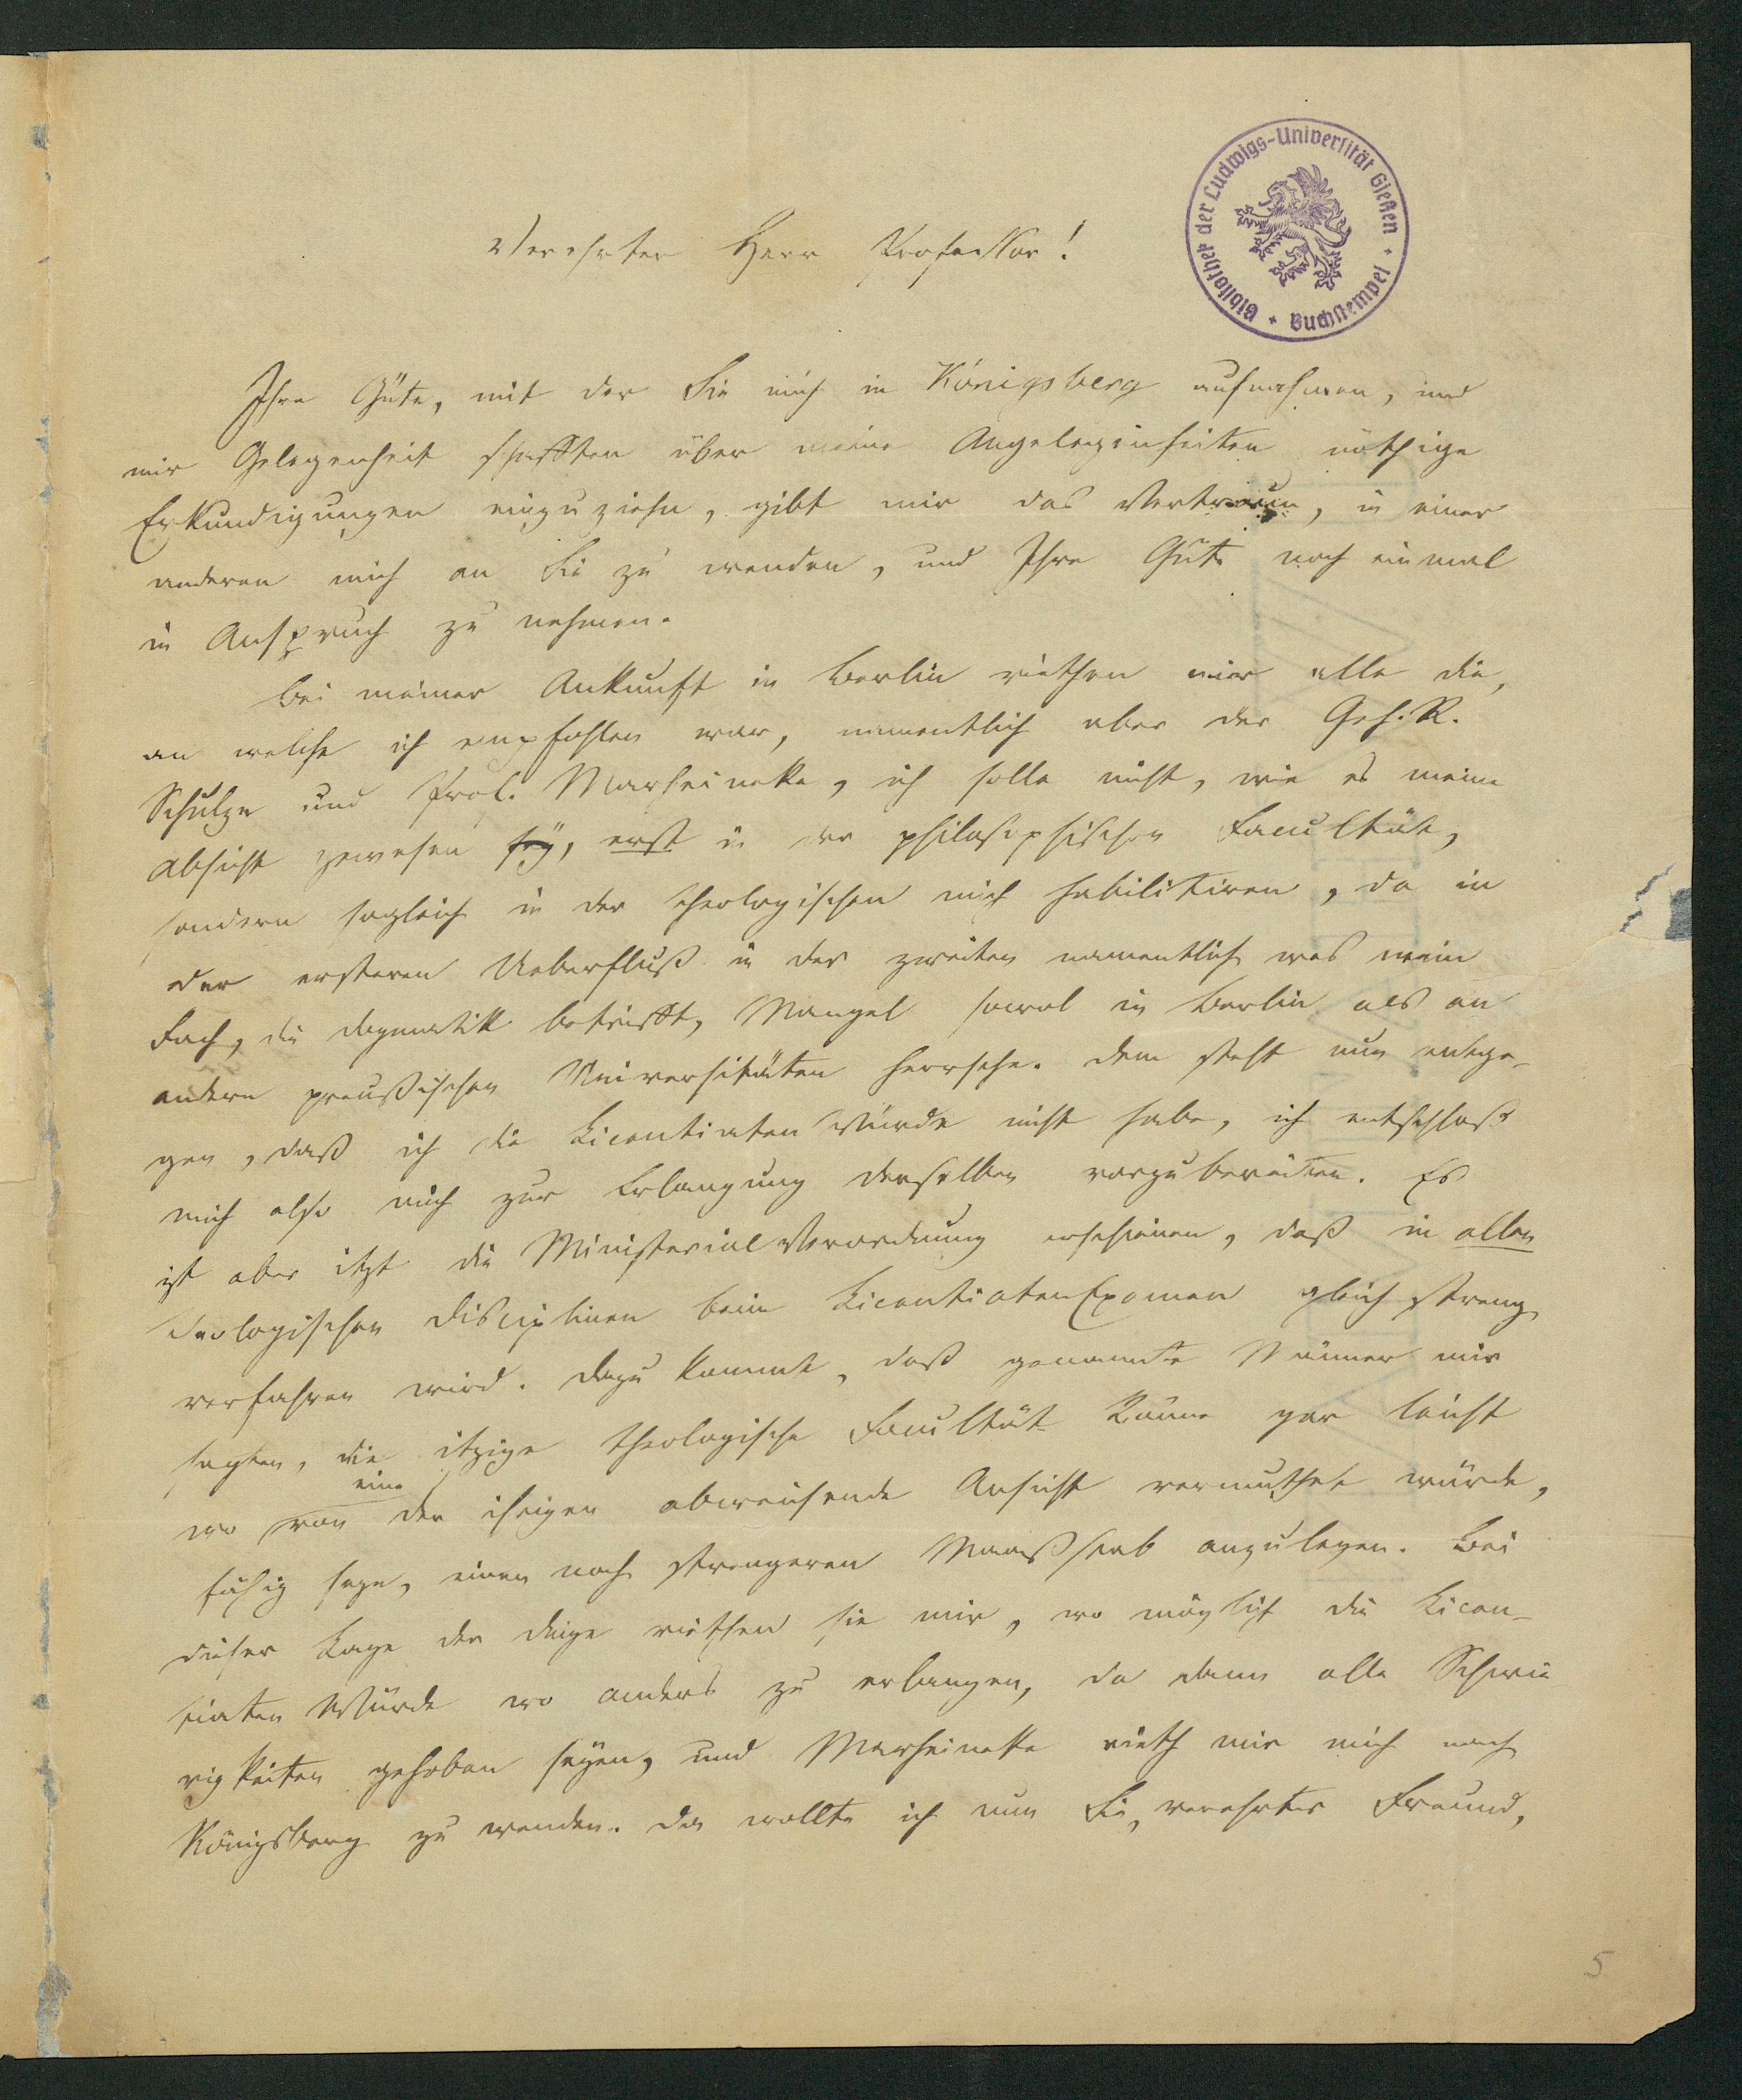 Verehrter Herr Professor!
Bibliothek der Ludwigs-Universität Gießen * Buchstempel *
Ihre Güte, mit der Sie mich in Königsberg aufnahmen, und
mir Gelegenheit schafften über meine Angelegenheiten nöthige
Erkundigungen einzuziehn, gibt mir das Vertraun, in einer
anderen mich an Sie zu wenden, und Ihre Güte noch einmal
in Anspruch zu nehmen.
Bei meiner Ankunft in Berlin riethen mir alle die,
an welche ich empfohlen war, namentlich aber der Geh. R.
Schulze und Prof. Marheineke, ich solle nicht, wie es meine
Absicht gewesen sey, erst in der philosophischen Facultät,
sondern sogleich in der theologischen mich habilitiren, da in
der ersteren Ueberfluß in der zweiten namentlich was mein
Fach, die Dogmatik betrifft, Mangel sowol in Berlin als an
andern preußischen Universitäten herrsche. Dem steht nun entge-
gen, daß ich die Licentiaten Würde nicht habe, ich entschloß
mich also mich zur Erlangung derselben vorzubereiten. Es
ist aber itzt die Ministerial Verordnung erschienen, daß in allen
theologischen Disciplinen beim Licentiaten Examen gleich streng
verfahren wird. Dazu kommt, daß genannte Männer mir
sagten, die itzige theologische Facultät könne gar leicht
eine
wo von der ihrigen abweichende Ansicht vermuthet würde,
fähig seyn, einen noch strengeren Maaßstab anzulegen. Bei
dieser Lage der Dinge riethen sie mir, wo möglich die Licen-
tiaten Würde wo anders zu erlangen, da dann alle Schwie
rigkeiten gehoben seyen, und Marheineke rieth mir mich nach
Königsberg zu wenden. Da wollte ich nun Sie, verehrter Freund,
5